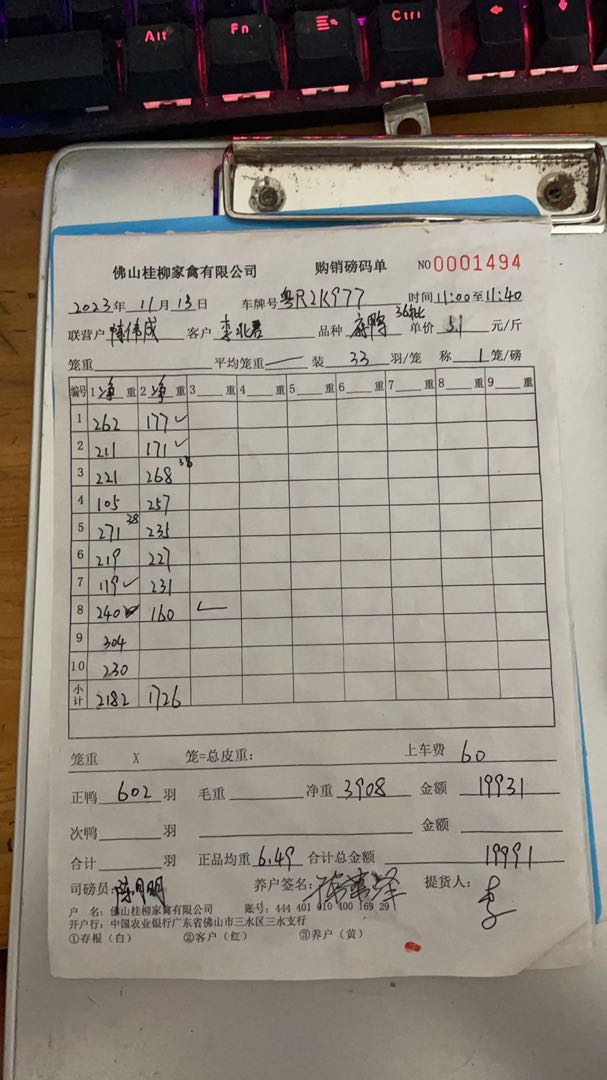 Alt Fn Ctrl
佛山桂柳家禽有限公司 购销磅码单 NO 0001494
2023年 11月 13日 车牌号 粤R2K977 时间 11:00至11:40
联营户 陈伟成 客户 李北君 品种 麻鸭 36批 单价 5.1 元/斤
笼重 平均笼重 装 33 羽/笼 称 1 笼/磅
编号 1净重 2净重 3 重 4 重 5 重 6 重 7 重 8 重 9 重
1 262 177✓
2 211 171✓
3 221 268 38
4 105 257
5 271 28 235
6 219 227
7 119✓ 231
8 240 160
9 304
10 230
小计 2182 1726
笼重 X 笼=总皮重: 上车费 60
正鸭 602 羽 毛重 净重 3908 金额 19931
次鸭 羽 金额
合计 羽 正品均重 6.49 合计总金额 19991
司磅员: 养户签名: 提货人: 李
户 名: 佛山桂柳家禽有限公司 账号: 444 401 010 400 169 29
开户行: 中国农业银行广东省佛山市三水区三水支行
①存根(白) ②客户(红) ③养户(黄)